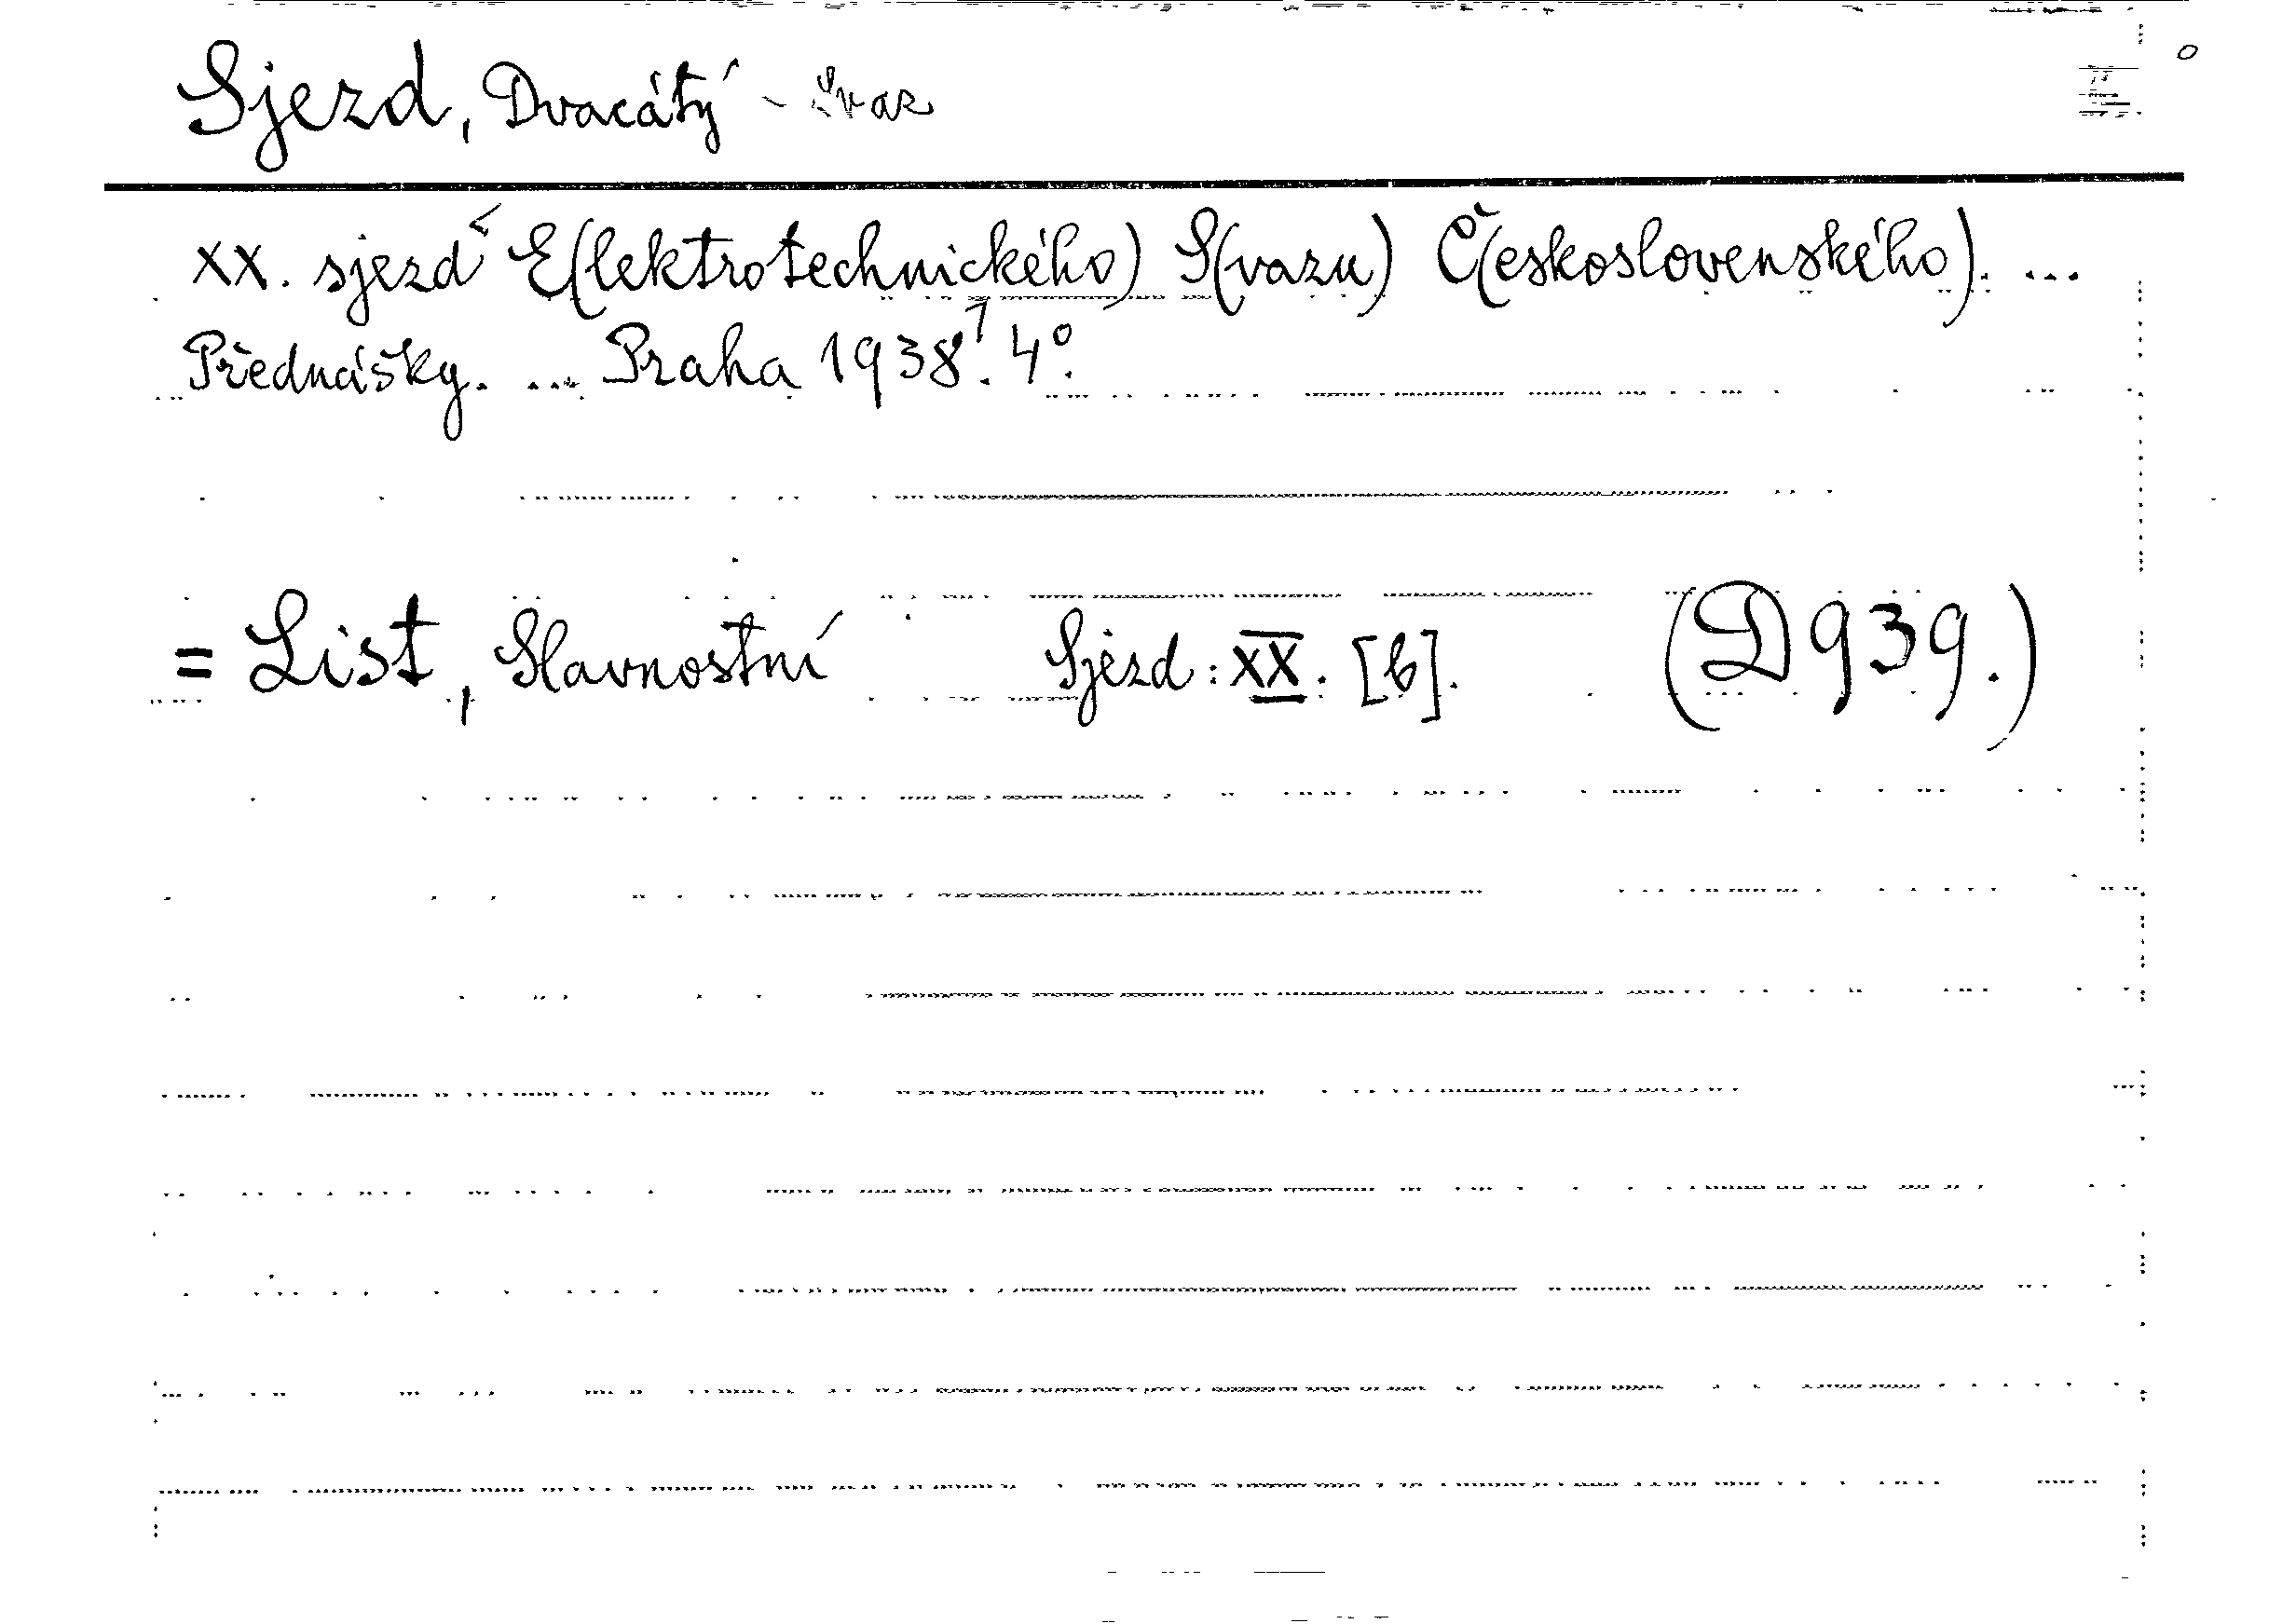 Sjezd, Dvacátý - Svaz
XX. sjezd < E(lektrotechnického) S(vazu) Č(eskoslovenského). ...
Přednášky. ... Praha 1938.7 4°.
= List, Slavnostní Sjezd: XX. [b]. (D 939.)